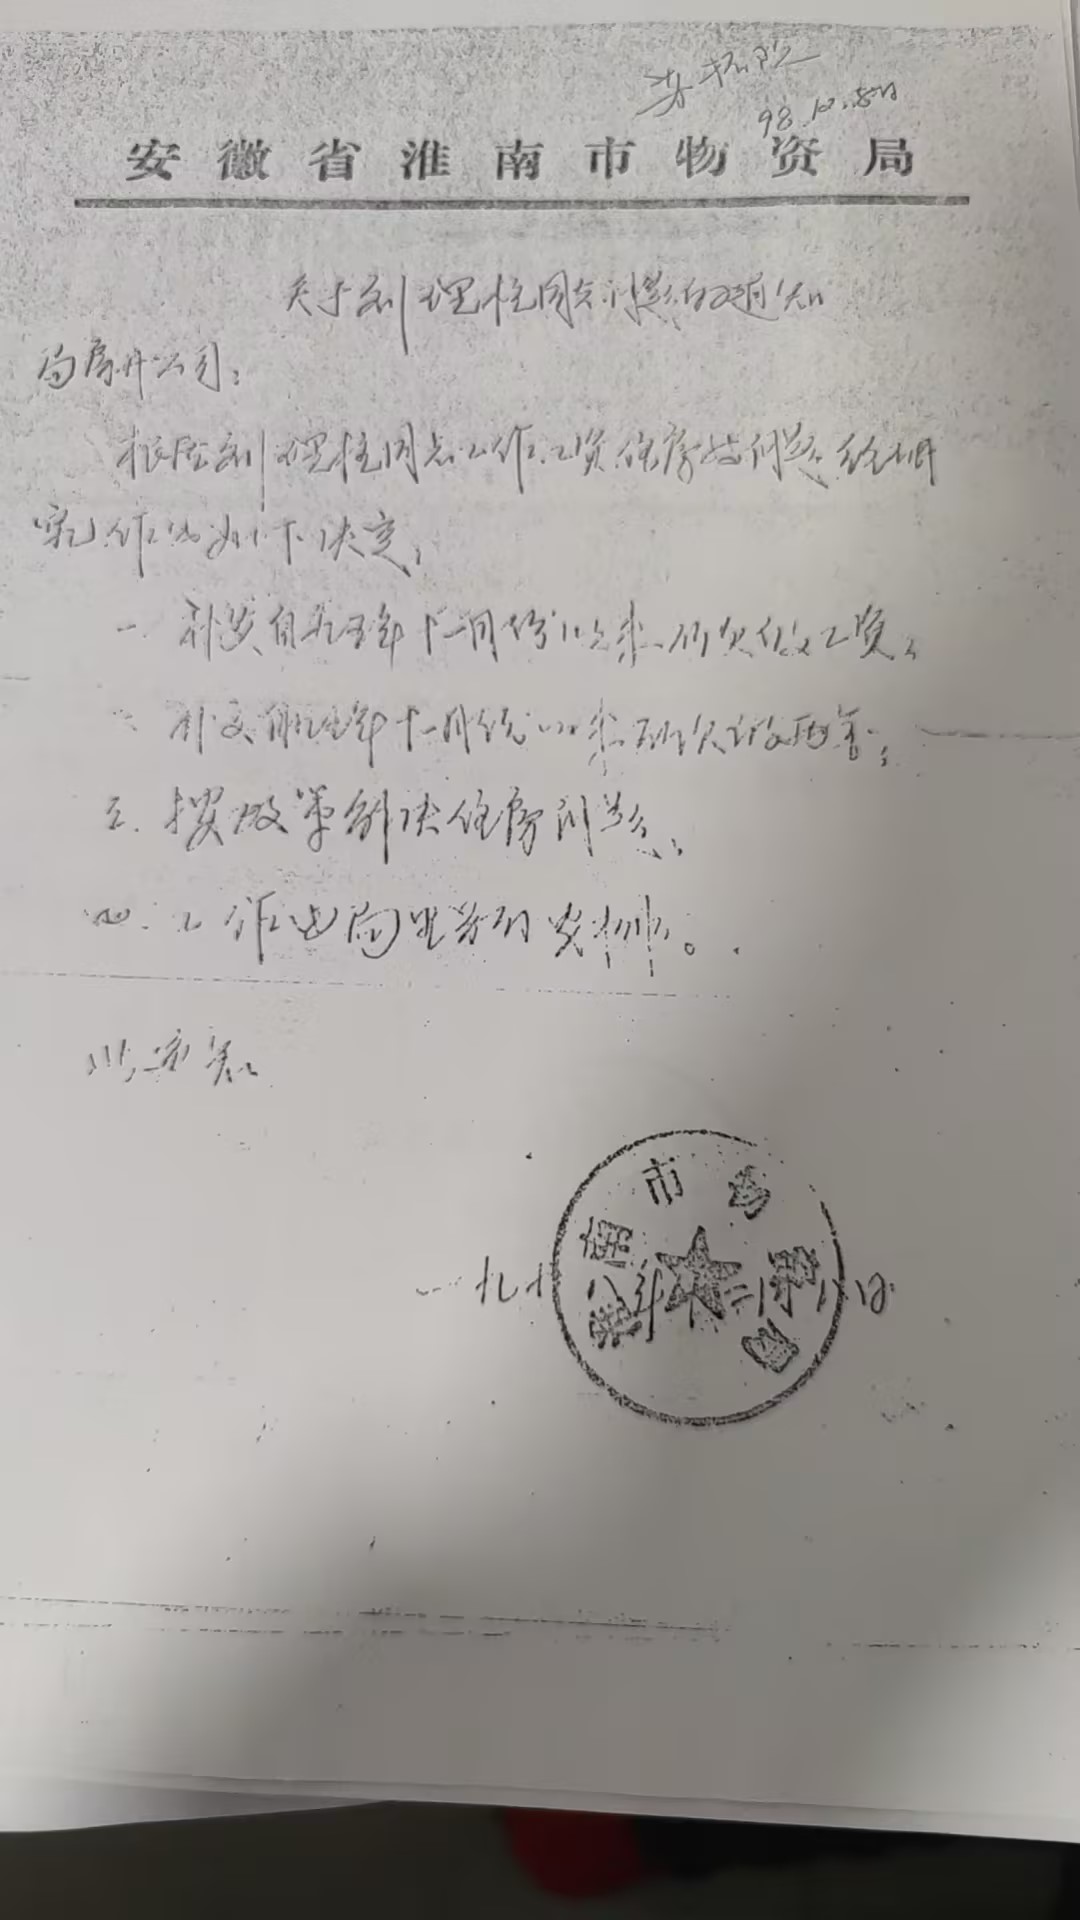 98.12.8日
安徽省淮南市物资局
关于刘理柱同志问题的通知
局房开公司：
根据刘理柱同志工作工资住房等问题，经研
究作出如下决定：
一、补发自九五年十二月份以来所欠发工资；
补交自九五年十一月份以来所欠
三、按政策解决住房问题；
四、工作由局里另行安排。
淮南市物资局
一九九八年十二月八日